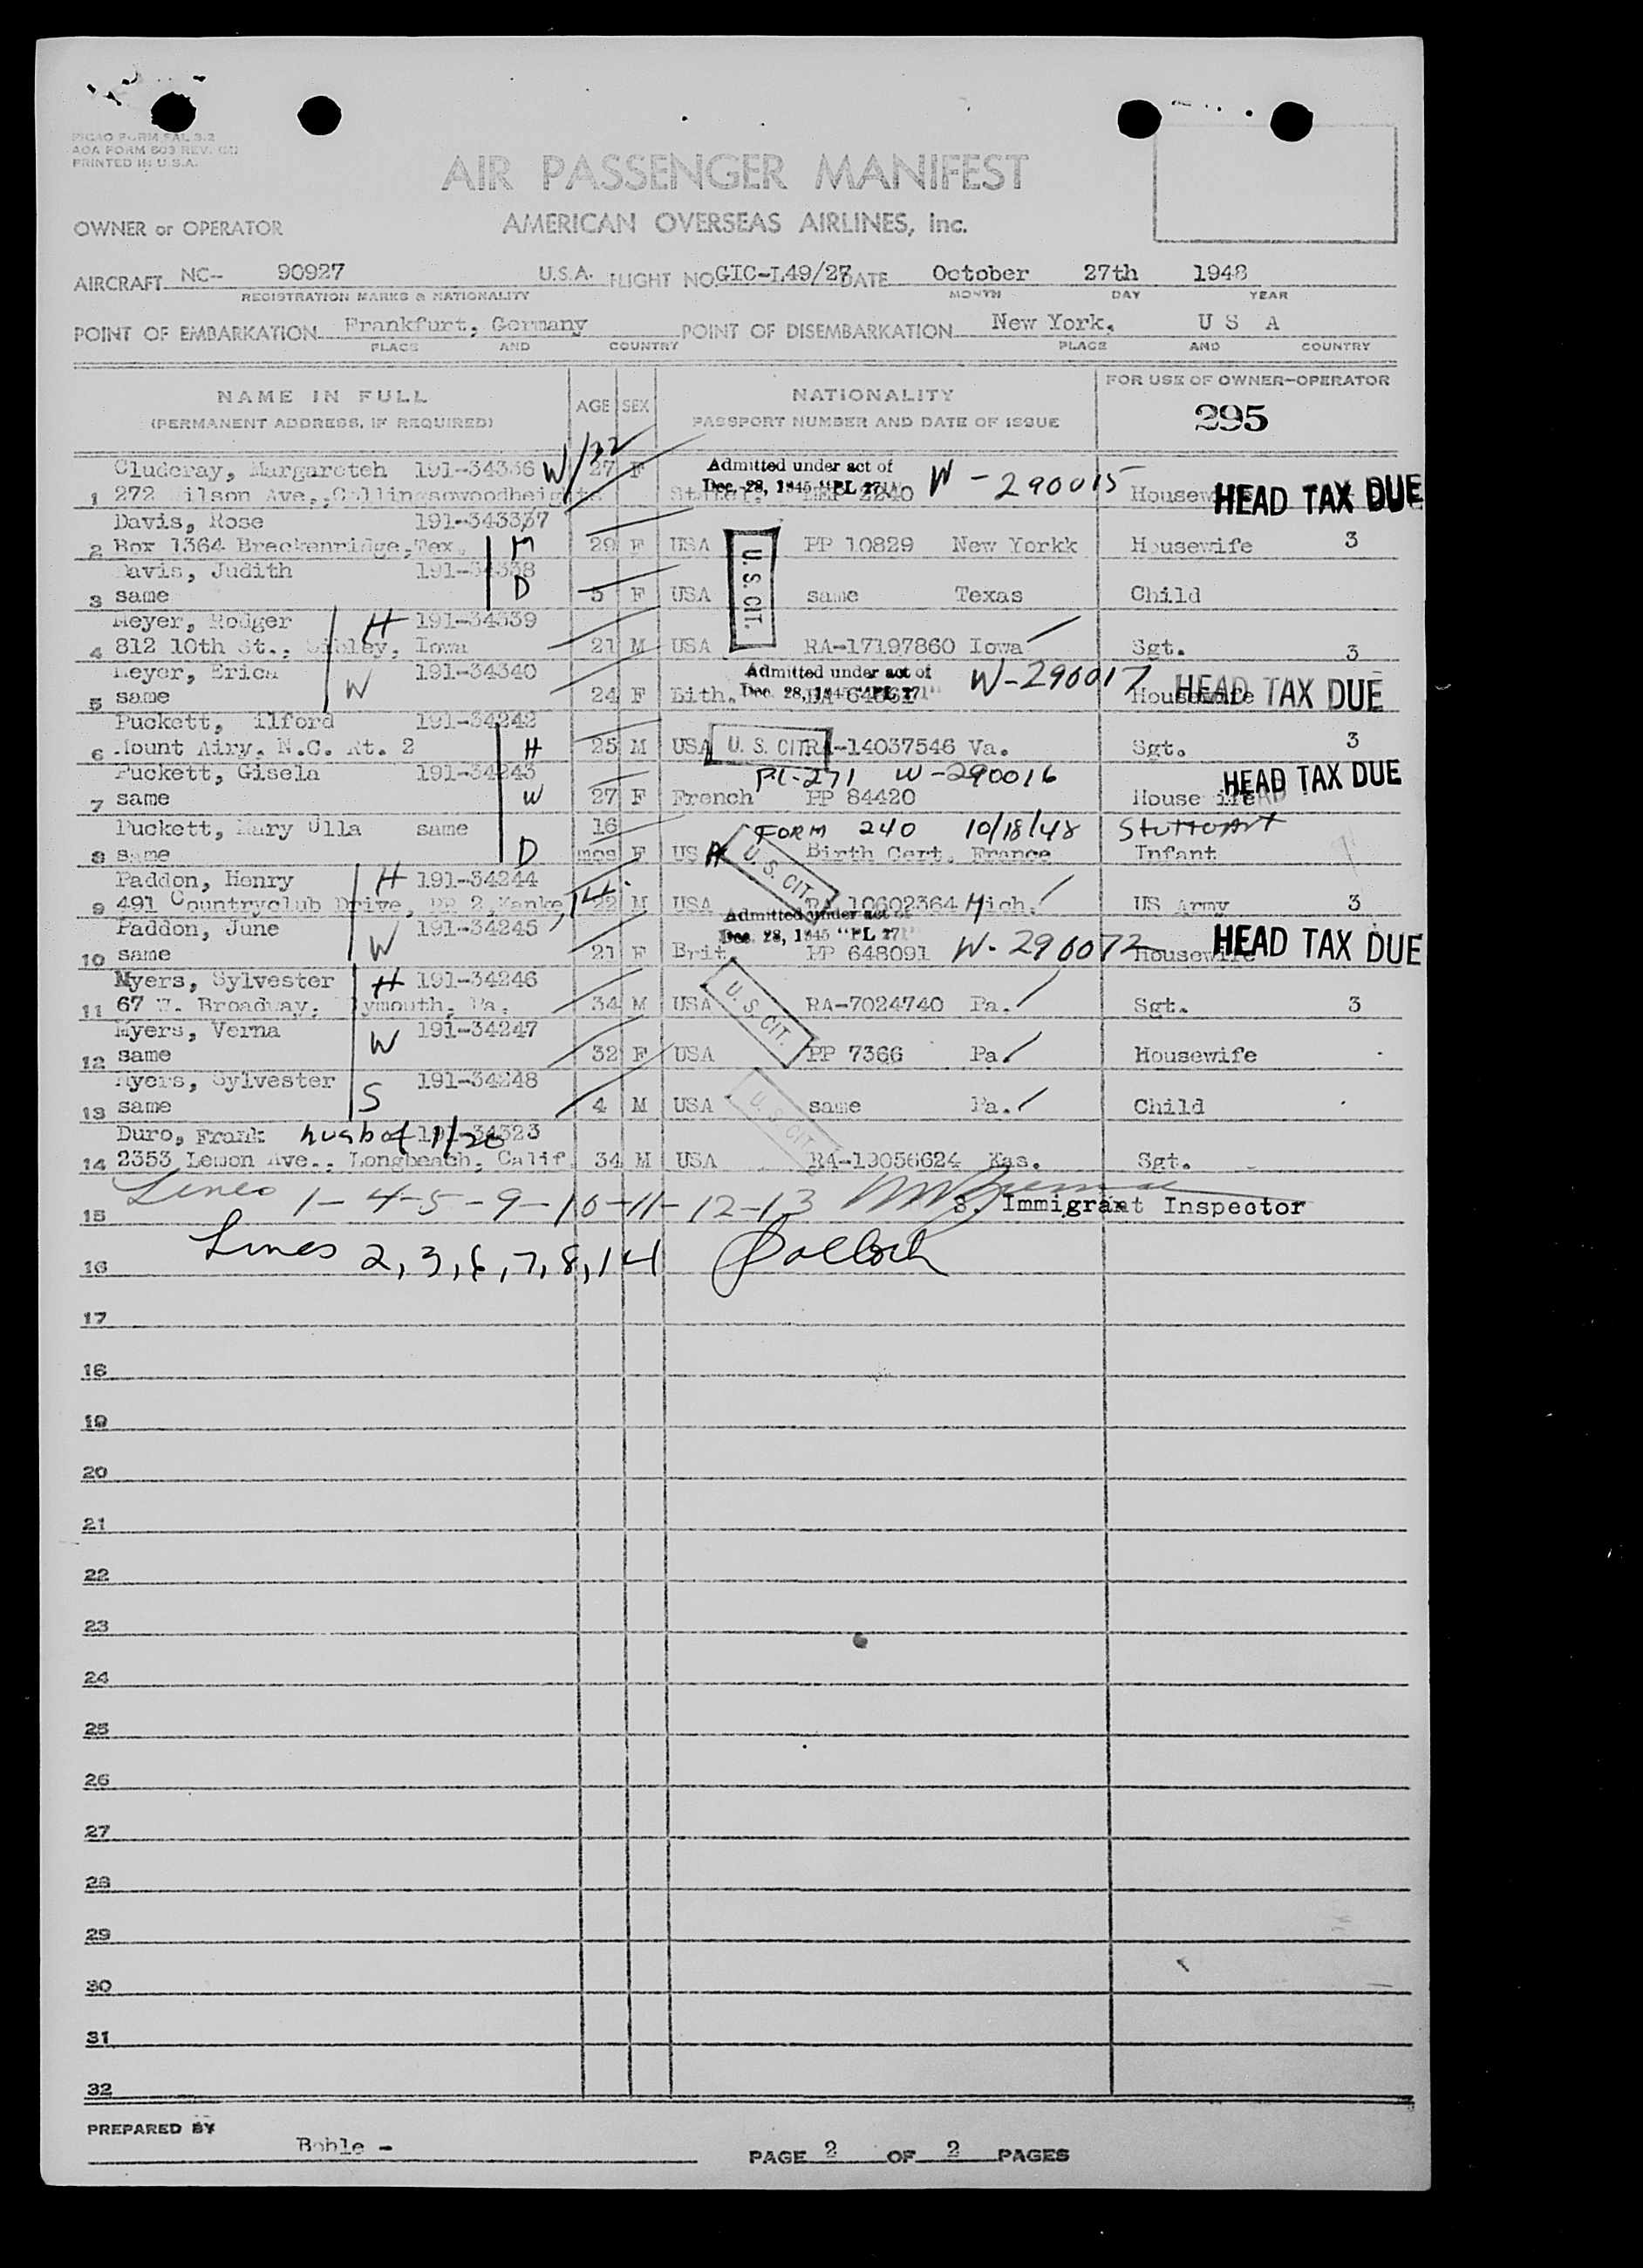 PICAO FORM FAL 3.2
AOA FORM 603 REV.
PRINTED IN U.S.A.
AIR PASSENGER MANIFEST
OWNER or OPERATOR AMERICAN OVERSEAS AIRLINES, Inc.
AIRCRAFT NC-- 90927 U.S.A. FLIGHT NO GIC-L49/27 DATE October 27th 1948
REGISTRATION MARKS & NATIONALITY MONTH DAY YEAR
POINT OF EMBARKATION Frankfurt, Germany POINT OF DISEMBARKATION New York, U S A
PLACE AND COUNTRY PLACE AND COUNTRY
NAME IN FULL AGE SEX NATIONALITY FOR USE OF OWNER-OPERATOR
(PERMANENT ADDRESS, IF REQUIRED) PASSPORT NUMBER AND DATE OF ISSUE 295
Cluderay, Margareteh 191-34336 W/32 27 F Admitted under act of
1 272 ilson Ave., Dec. 28, 1945 "PL 271" 2240 W-290015 HEAD TAX DUE
Davis, Rose 191-343337
2 Box 1364 Breckenridge, Tex. M 29 F USA PP 10829 New Yorkk Housewife 3
Davis, Judith 191-34338
3 same D 5 F USA U. S. CIT. same Texas Child
Meyer, Rodger H 191-34339
4 812 10th St., Sibley, Iowa 21 M USA RA-17197860 Iowa Sgt. 3
Meyer, Erica 191-34340 Admitted under act of W-290017
5 same W 24 F Lith. Dec. 28, 1945 "PL 271" Housewife HEAD TAX DUE
Puckett, ilford 191-34242
6 Mount Airy, N.C. Rt. 2 H 25 M USA U. S. CIT RA-14037546 Va. Sgt. 3
Puckett, Gisela 191-34243 PL-271 W-290016 HEAD TAX DUE
7 same W 27 F French PP 84420 Housewife
Puckett, Mary Ulla same 16 FORM 240 10/18/48 Stuttgart
8 same D mos F USA U. S. CIT. Birth Cert. France Infant
Paddon, Henry H 191-34244
9 491 Countryclub Drive, RR 2, Kanke 22 M USA RA 10602364 Mich. US Army 3
Paddon, June 191-34245 Admitted under act of
10 same W 21 F Brit. Dec. 28, 1945 "PL 271" PP 648091 W-290072 Housewife HEAD TAX DUE
Myers, Sylvester H 191-34246
11 67 Broadway, Plymouth, Pa. 34 M USA U. S. CIT. RA-7024740 Pa. Sgt. 3
Myers, Verna 191-34247
12 same W 32 F USA PP 7366 Pa. Housewife
Myers, Sylvester 191-34248
13 same S 4 M USA U. S. CIT. same Pa. Child
Duro, Frank husb of 1/20 191-34323
14 2353 Lemon Ave., Longbeach, Calif. 34 M USA RA-19056624 Kas. Sgt.
Lines 1-4-5-9-10-11-12-13
15 S. Immigrant Inspector
16 Lines 2,3,6,7,8,14
17
18
19
20
21
22
23
24
25
26
27
28
29
30
31
32
PREPARED BY Bohle - PAGE 2 OF 2 PAGES